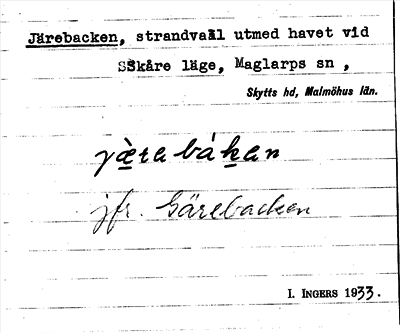 Järebacken, strandvall utmed havet vid
Skåre läge, Maglarps sn,
Skytts hd, Malmöhus län.
jæ̀rabákan
jfr. Gärebacken
I. INGERS 1933.